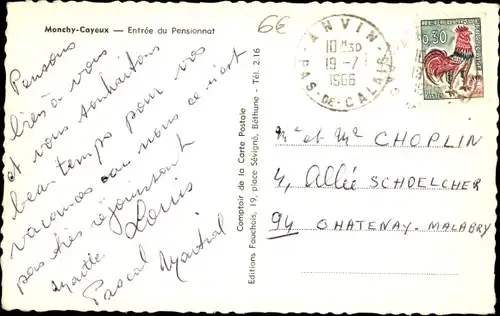 Monchy-Cayeux — Entrée du Pensionnat
6€
ANVIN
10 H 30
19-7
1966
PAS-DE-CALAIS
0,30
Pensons
bien à vous
et vous souhaitons
beau temps pour vos
vacances car nous ce n'est
pas très réjouissant
Louis
Pascal Martial
Comptoir de la Carte Postale
Editions Fauchois, 19, place Sévigné, Béthune - Tél. 2.16
Mr et Me CHOPLIN
4, Allée SCHOELCHER
94 CHATENAY-MALABRY